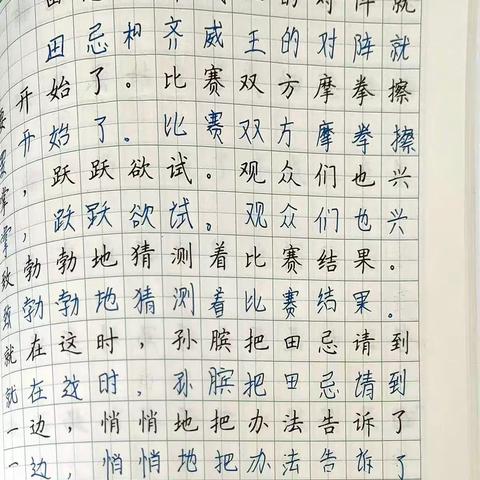 的对阵就
田忌相齐威王的对阵就
要开始了。比赛双方摩拳擦
要开始了。比赛双方摩拳擦
掌，跃跃欲试。观众们也兴
掌，跃跃欲试。观众们也兴
致勃勃地猜测着比赛结果。
致勃勃地猜测着比赛结果。
就在这时，孙膑把田忌请到
就在这时，孙膑把田忌请到
一边，悄悄地把办法告诉了
一边，悄悄地把办法告诉了